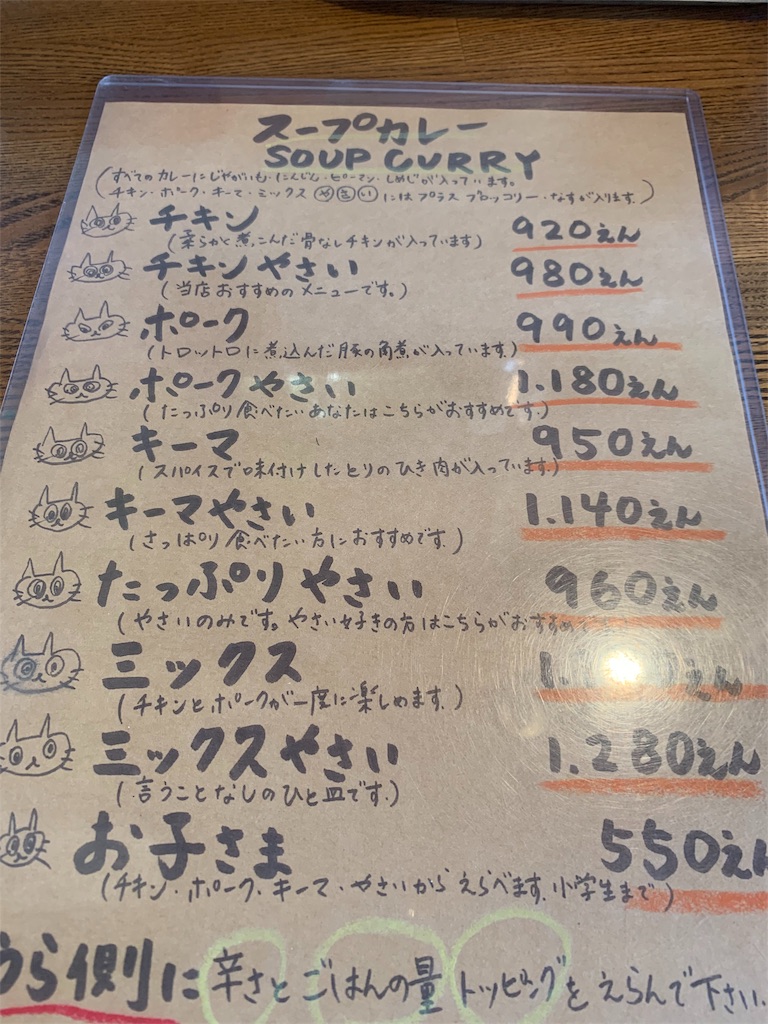 スープカレー
SOUP CURRY
(すべてのカレーにじゃがいも・にんじん・ピーマン・しめじが入っています。
チキン・ポーク・キーマ・ミックス やさい にはプラス ブロッコリー・なすが入ります。)
チキン 920えん
(柔らかく煮こんだ骨なしチキンが入っています)
チキンやさい 980えん
(当店おすすめのメニューです。)
ポーク 990えん
(トロットロに煮込んだ豚の角煮が入っています)
ポークやさい 1.180えん
(たっぷり食べたいあなたはこちらがおすすめです。)
キーマ 950えん
(スパイスで味付けしたとりのひき肉が入っています)
キーマやさい 1.140えん
(さっぱり食べたい方におすすめです。)
たっぷりやさい 960えん
(やさいのみです。やさい好きの方はこちらがおすすめ
ミックス えん
(チキンとポークが一度に楽しめます。)
ミックスやさい 1.280えん
(言うことなしのひと皿です。)
お子さま 550えん
(チキン・ポーク・キーマ・やさいからえらべます。小学生まで)
うら側に辛さとごはんの量トッピングをえらんで下さい。